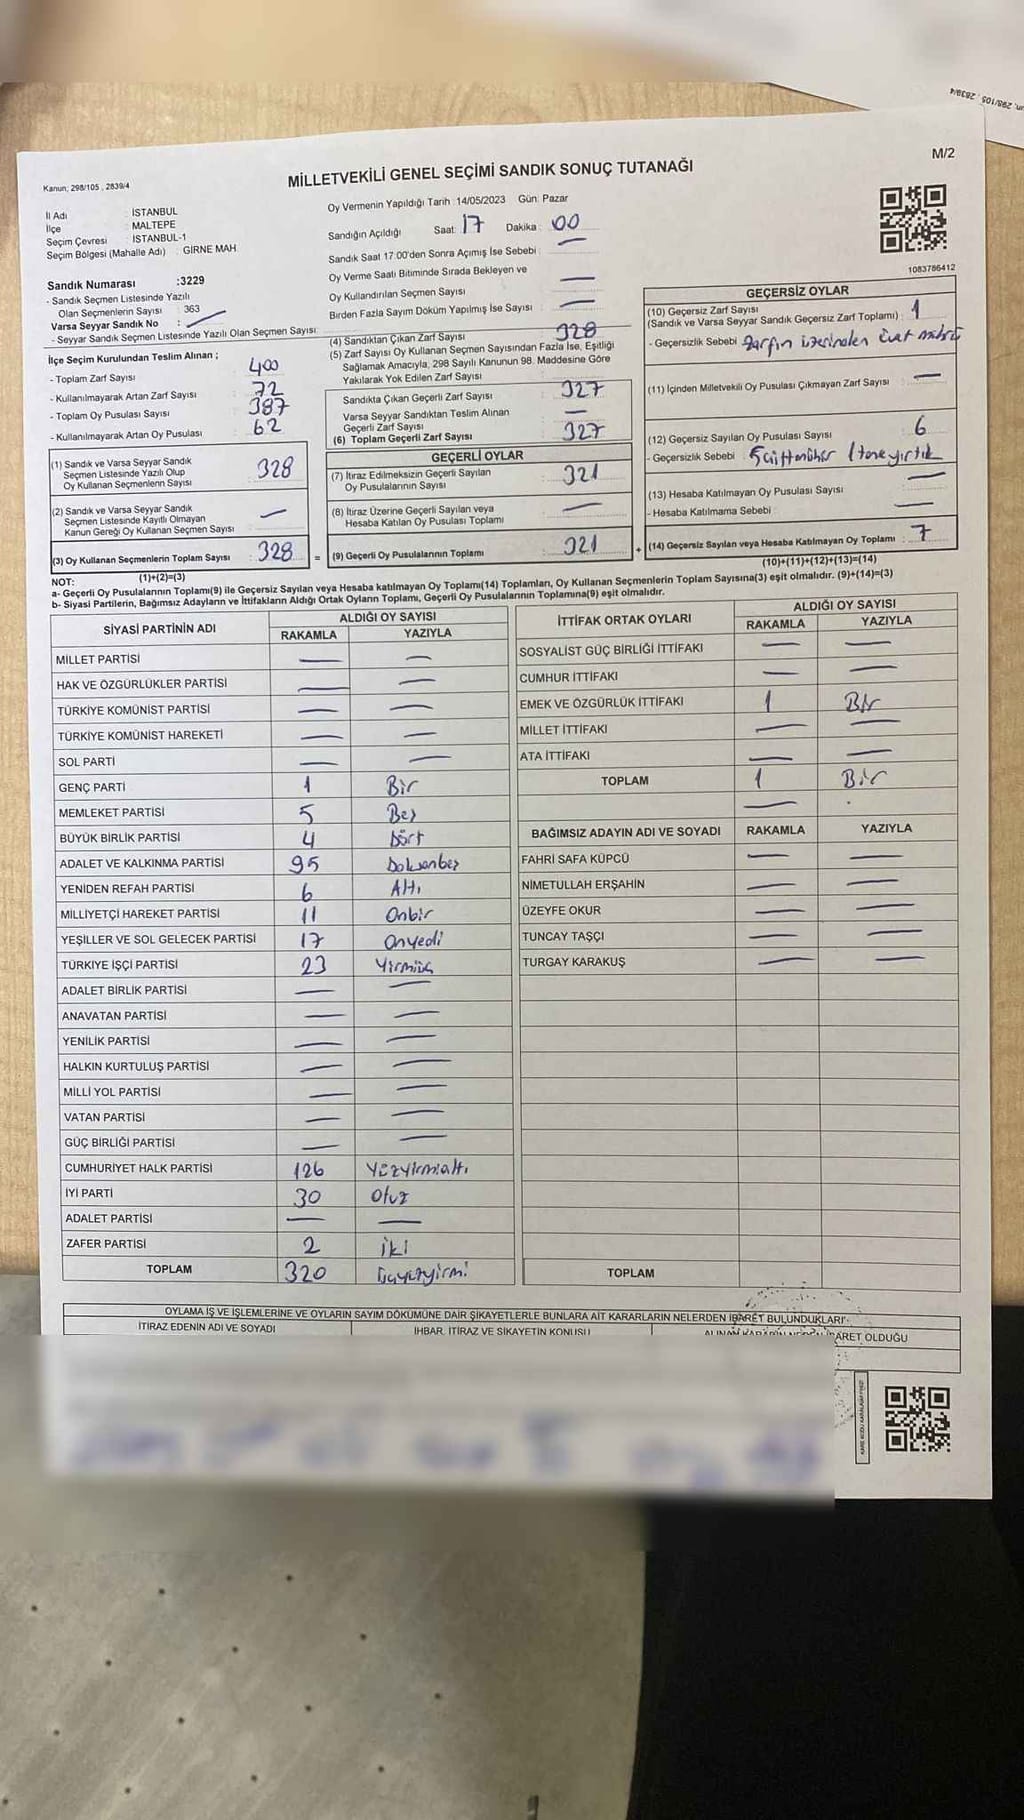 un. 298/105 , 2839/4
M/2
Kanun; 298/105 , 2839/4
MİLLETVEKİLİ GENEL SEÇİMİ SANDIK SONUÇ TUTANAĞI
İl Adı : İSTANBUL
İlçe : MALTEPE
Seçim Çevresi : İSTANBUL-1
Seçim Bölgesi (Mahalle Adı) : GİRNE MAH.
Sandık Numarası :3229
- Sandık Seçmen Listesinde Yazılı
Olan Seçmenlerin Sayısı : 363
Varsa Seyyar Sandık No :
- Seyyar Sandık Seçmen Listesinde Yazılı Olan Seçmen Sayısı:
İlçe Seçim Kurulundan Teslim Alınan ;
- Toplam Zarf Sayısı : 400
- Kullanılmayarak Artan Zarf Sayısı : 72
- Toplam Oy Pusulası Sayısı : 387
- Kullanılmayarak Artan Oy Pusulası : 62
(1) Sandık ve Varsa Seyyar Sandık
Seçmen Listesinde Yazılı Olup
Oy Kullanan Seçmenlerin Sayısı 328
(2) Sandık ve Varsa Seyyar Sandık
Seçmen Listesinde Kayıtlı Olmayan
Kanun Gereği Oy Kullanan Seçmen Sayısı —
(3) Oy Kullanan Seçmenlerin Toplam Sayısı : 328 =
(1)+(2)=(3)
Oy Vermenin Yapıldığı Tarih :14/05/2023 Gün: Pazar
Sandığın Açıldığı Saat: 17 Dakika : 00
Sandık Saat 17:00'den Sonra Açımış İse Sebebi : —
Oy Verme Saati Bitiminde Sırada Bekleyen ve
Oy Kullandırılan Seçmen Sayısı : —
Birden Fazla Sayım Döküm Yapılmış İse Sayısı : —
(4) Sandıktan Çıkan Zarf Sayısı : 328
(5) Zarf Sayısı Oy Kullanan Seçmen Sayısından Fazla İse, Eşitliği
Sağlamak Amacıyla, 298 Sayılı Kanunun 98. Maddesine Göre
Yakılarak Yok Edilen Zarf Sayısı :
Sandıkta Çıkan Geçerli Zarf Sayısı : 327
Varsa Seyyar Sandıktan Teslim Alınan
Geçerli Zarf Sayısı : —
(6) Toplam Geçerli Zarf Sayısı : 327
GEÇERLİ OYLAR
(7) İtiraz Edilmeksizin Geçerli Sayılan
Oy Pusulalarının Sayısı : 321
(8) İtiraz Üzerine Geçerli Sayılan veya
Hesaba Katılan Oy Pusulası Toplamı : —
(9) Geçerli Oy Pusulalarının Toplamı : 321 +
1083786412
GEÇERSİZ OYLAR
(10) Geçersiz Zarf Sayısı
(Sandık ve Varsa Seyyar Sandık Geçersiz Zarf Toplamı) : 1
- Geçersizlik Sebebi : Zarfın üzerinden Evet
(11) İçinden Milletvekili Oy Pusulası Çıkmayan Zarf Sayısı : —
(12) Geçersiz Sayılan Oy Pusulası Sayısı : 6
- Geçersizlik Sebebi : 5 çift mühür 1 tane yırtık
(13) Hesaba Katılmayan Oy Pusulası Sayısı : —
- Hesaba Katılmama Sebebi : —
(14) Geçersiz Sayılan veya Hesaba Katılmayan Oy Toplamı : 7
(10)+(11)+(12)+(13)=(14)
NOT:
a- Geçerli Oy Pusulalarının Toplamı(9) ile Geçersiz Sayılan veya Hesaba katılmayan Oy Toplamı(14) Toplamları, Oy Kullanan Seçmenlerin Toplam Sayısına(3) eşit olmalıdır. (9)+(14)=(3)
b- Siyasi Partilerin, Bağımsız Adayların ve İttifakların Aldığı Ortak Oyların Toplamı, Geçerli Oy Pusulalarının Toplamına(9) eşit olmalıdır.
SİYASİ PARTİNİN ADI ALDIĞI OY SAYISI
RAKAMLA YAZIYLA
MİLLET PARTİSİ — —
HAK VE ÖZGÜRLÜKLER PARTİSİ — —
TÜRKİYE KOMÜNİST PARTİSİ — —
TÜRKİYE KOMÜNİST HAREKETİ — —
SOL PARTİ — —
GENÇ PARTİ 1 Bir
MEMLEKET PARTİSİ 5 Beş
BÜYÜK BİRLİK PARTİSİ 4 Dört
ADALET VE KALKINMA PARTİSİ 95 Doksanbeş
YENİDEN REFAH PARTİSİ 6 Altı
MİLLİYETÇİ HAREKET PARTİSİ 11 Onbir
YEŞİLLER VE SOL GELECEK PARTİSİ 17 Onyedi
TÜRKİYE İŞÇİ PARTİSİ 23 Yirmiüç
ADALET BİRLİK PARTİSİ — —
ANAVATAN PARTİSİ — —
YENİLİK PARTİSİ — —
HALKIN KURTULUŞ PARTİSİ — —
MİLLİ YOL PARTİSİ — —
VATAN PARTİSİ — —
GÜÇ BİRLİĞİ PARTİSİ — —
CUMHURİYET HALK PARTİSİ 126 Yüzyirmialtı
İYİ PARTİ 30 Otuz
ADALET PARTİSİ — —
ZAFER PARTİSİ 2 İki
TOPLAM 320 Üçyüzyirmi
İTTİFAK ORTAK OYLARI ALDIĞI OY SAYISI
RAKAMLA YAZIYLA
SOSYALİST GÜÇ BİRLİĞİ İTTİFAKI — —
CUMHUR İTTİFAKI — —
EMEK VE ÖZGÜRLÜK İTTİFAKI 1 Bir
MİLLET İTTİFAKI — —
ATA İTTİFAKI — —
TOPLAM 1 Bir
—
BAĞIMSIZ ADAYIN ADI VE SOYADI RAKAMLA YAZIYLA
FAHRİ SAFA KÜPCÜ — —
NİMETULLAH ERŞAHİN — —
ÜZEYFE OKUR — —
TUNCAY TAŞÇI — —
TURGAY KARAKUŞ — —
TOPLAM
OYLAMA İŞ VE İŞLEMLERİNE VE OYLARIN SAYIM DÖKÜMÜNE DAİR ŞİKAYETLERLE BUNLARA AİT KARARLARIN NELERDEN İBARET BULUNDUKLARI
İTİRAZ EDENİN ADI VE SOYADI İHBAR, İTİRAZ VE ŞİKAYETİN KONUSU ALINAN KARARIN NEDEN İBARET OLDUĞU